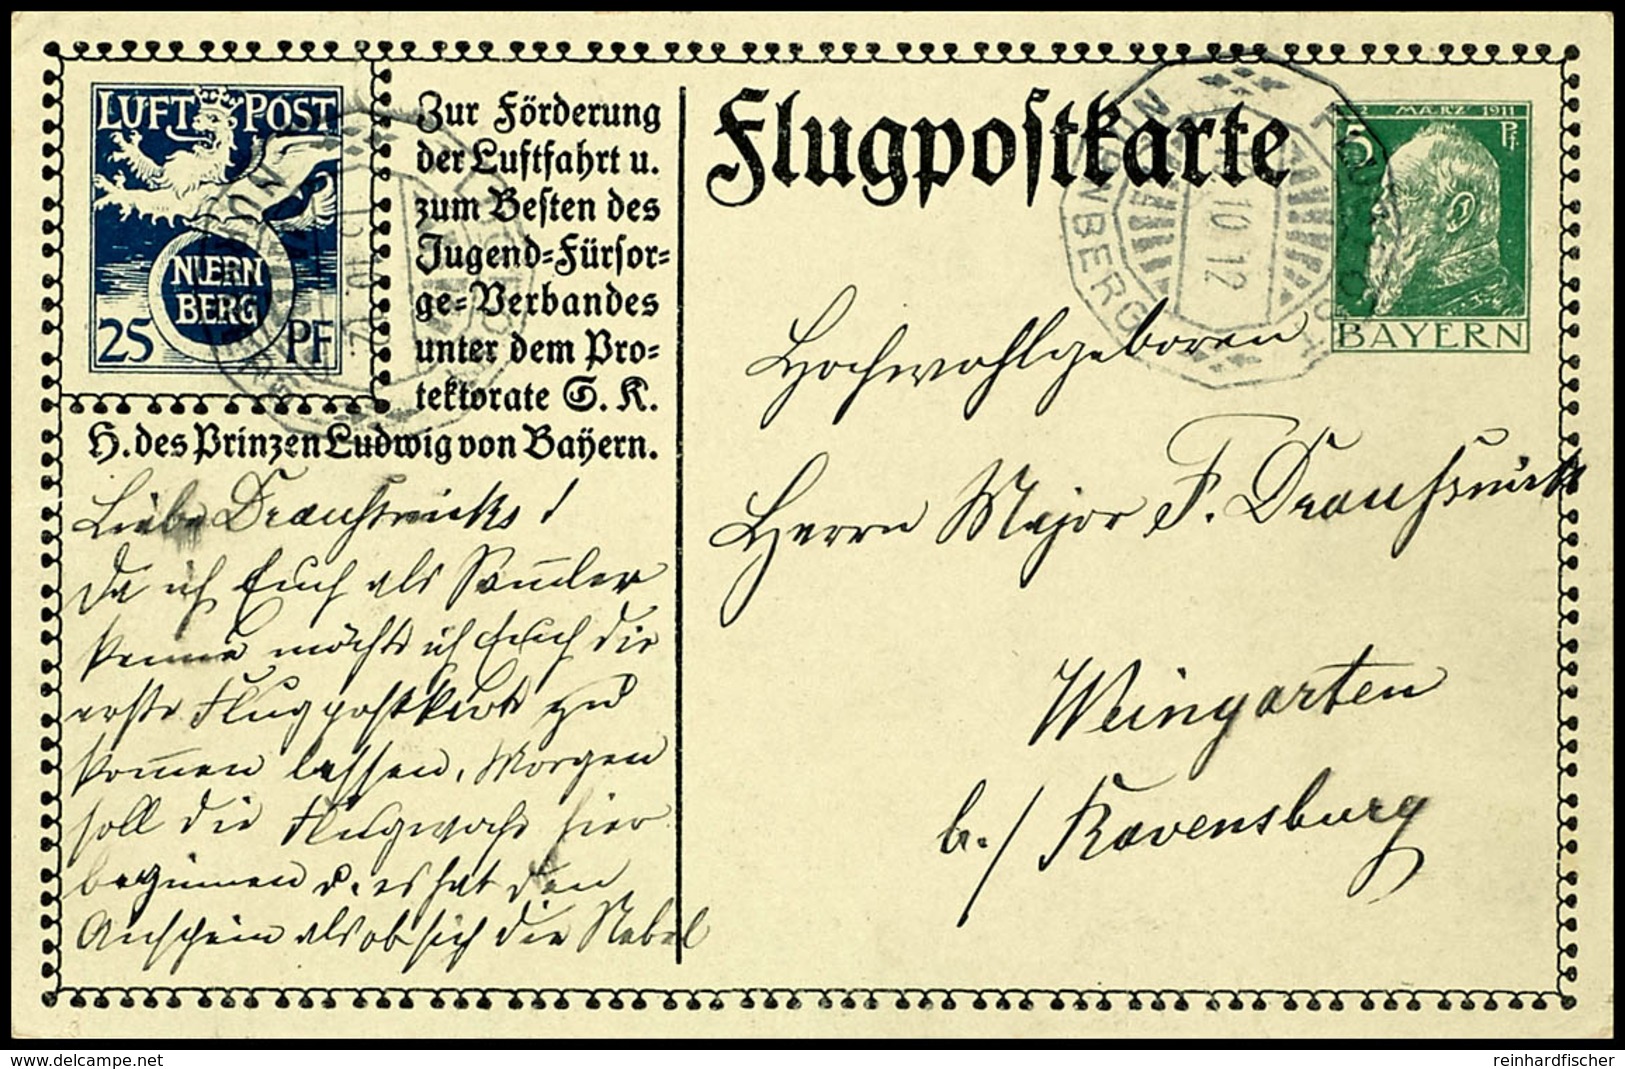 LUFT POST
NUERN
BERG
25 PF
Zur Förderung
der Luftfahrt u.
zum Besten des
Jugend=Fürsor=
ge=Verbandes
unter dem Pro=
tektorate S. K.
H. des Prinzen Ludwig von Bayern.
Flugpostkarte
12 MÆRZ 1911
5 Pf.
BAYERN
NÜRNBERG
FLUGPOST
10.12
Liebe
Da ich Euch als Sam̅ler
kenne möchte ich Euch die
erste Flugpostkarte zu
kom̅en lassen. Morgen
soll die Flugwoche hier
beginnen u. es hat den
Anschein als ob sich die Nebel
Hochwohlgeboren
Herrn Major F.
Weingarten
b./ Ravensburg
www.delcampe.net
reinhardfischer